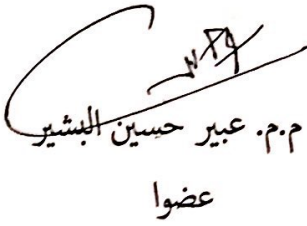 م.م. عبير حسين البشير
عضوا